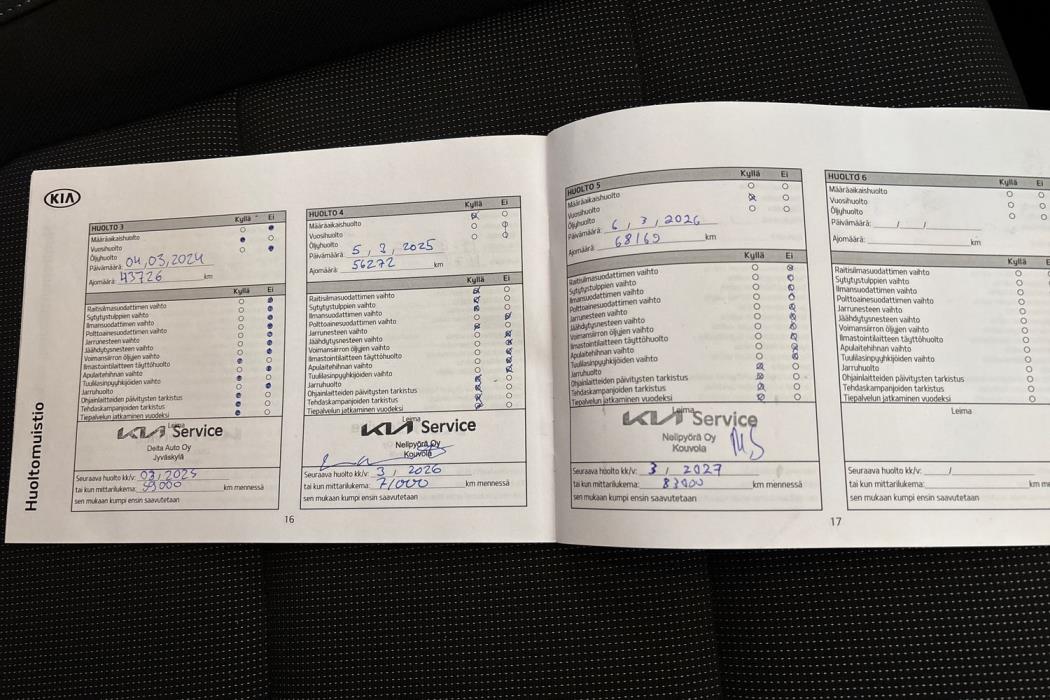 KIA
Huoltomuistio
HUOLTO 3 Kyllä Ei
Määräaikaishuolto
Vuosihuolto
Öljyhuolto
Päivämäärä: 04,03,2024
Ajomäärä: 43726 km
Kyllä Ei
Raitisilmasuodattimen vaihto
Sytytystulppien vaihto
Ilmansuodattimen vaihto
Polttoainesuodattimen vaihto
Jarrunesteen vaihto
Jäähdytysnesteen vaihto
Voimansiirron öljyjen vaihto
Ilmastointilaitteen täyttöhuolto
Apulaitehihnan vaihto
Tuulilasinpyyhkijöiden vaihto
Jarruhuolto
Ohjainlaitteiden päivitysten tarkistus
Tehdaskampanjoiden tarkistus
Tiepalvelun jatkaminen vuodeksi
Leima
KIA Service
Delta Auto Oy
Jyväskylä
Seuraava huolto kk/v: 03, 2025
tai kun mittarilukema: 59000 km mennessä
sen mukaan kumpi ensin saavutetaan
HUOLTO 4 Kyllä Ei
Määräaikaishuolto
Vuosihuolto
Öljyhuolto
Päivämäärä: 5, 3, 2025
Ajomäärä: 56272 km
Kyllä Ei
Raitisilmasuodattimen vaihto
Sytytystulppien vaihto
Ilmansuodattimen vaihto
Polttoainesuodattimen vaihto
Jarrunesteen vaihto
Jäähdytysnesteen vaihto
Voimansiirron öljyjen vaihto
Ilmastointilaitteen täyttöhuolto
Apulaitehihnan vaihto
Tuulilasinpyyhkijöiden vaihto
Jarruhuolto
Ohjainlaitteiden päivitysten tarkistus
Tehdaskampanjoiden tarkistus
Tiepalvelun jatkaminen vuodeksi
Leima
KIA Service
Nelipyörä Oy
Kouvola
Seuraava huolto kk/v: 3, 2026
tai kun mittarilukema: 71000 km mennessä
sen mukaan kumpi ensin saavutetaan
16
HUOLTO 5 Kyllä Ei
Määräaikaishuolto
Vuosihuolto
Öljyhuolto
Päivämäärä: 6, 3, 2026
Ajomäärä: 68169 km
Kyllä Ei
Raitisilmasuodattimen vaihto
Sytytystulppien vaihto
Ilmansuodattimen vaihto
Polttoainesuodattimen vaihto
Jarrunesteen vaihto
Jäähdytysnesteen vaihto
Voimansiirron öljyjen vaihto
Ilmastointilaitteen täyttöhuolto
Apulaitehihnan vaihto
Tuulilasinpyyhkijöiden vaihto
Jarruhuolto
Ohjainlaitteiden päivitysten tarkistus
Tehdaskampanjoiden tarkistus
Tiepalvelun jatkaminen vuodeksi
Leima
KIA Service
Nelipyörä Oy
Kouvola
Seuraava huolto kk/v: 3 / 2027
tai kun mittarilukema: 83000 km mennessä
sen mukaan kumpi ensin saavutetaan
HUOLTO 6 Kyllä Ei
Määräaikaishuolto
Vuosihuolto
Öljyhuolto
Päivämäärä: / /
Ajomäärä: km
Kyllä E
Raitisilmasuodattimen vaihto
Sytytystulppien vaihto
Ilmansuodattimen vaihto
Polttoainesuodattimen vaihto
Jarrunesteen vaihto
Jäähdytysnesteen vaihto
Voimansiirron öljyjen vaihto
Ilmastointilaitteen täyttöhuolto
Apulaitehihnan vaihto
Tuulilasinpyyhkijöiden vaihto
Jarruhuolto
Ohjainlaitteiden päivitysten tarkistus
Tehdaskampanjoiden tarkistus
Tiepalvelun jatkaminen vuodeksi
Leima
Seuraava huolto kk/v: /
tai kun mittarilukema: km me
sen mukaan kumpi ensin saavutetaan
17